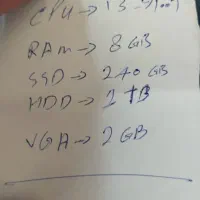 CPU → i5-9400
RAM → 8 GB
SSD → 240 GB
HDD → 1 TB
VGA → 2 GB